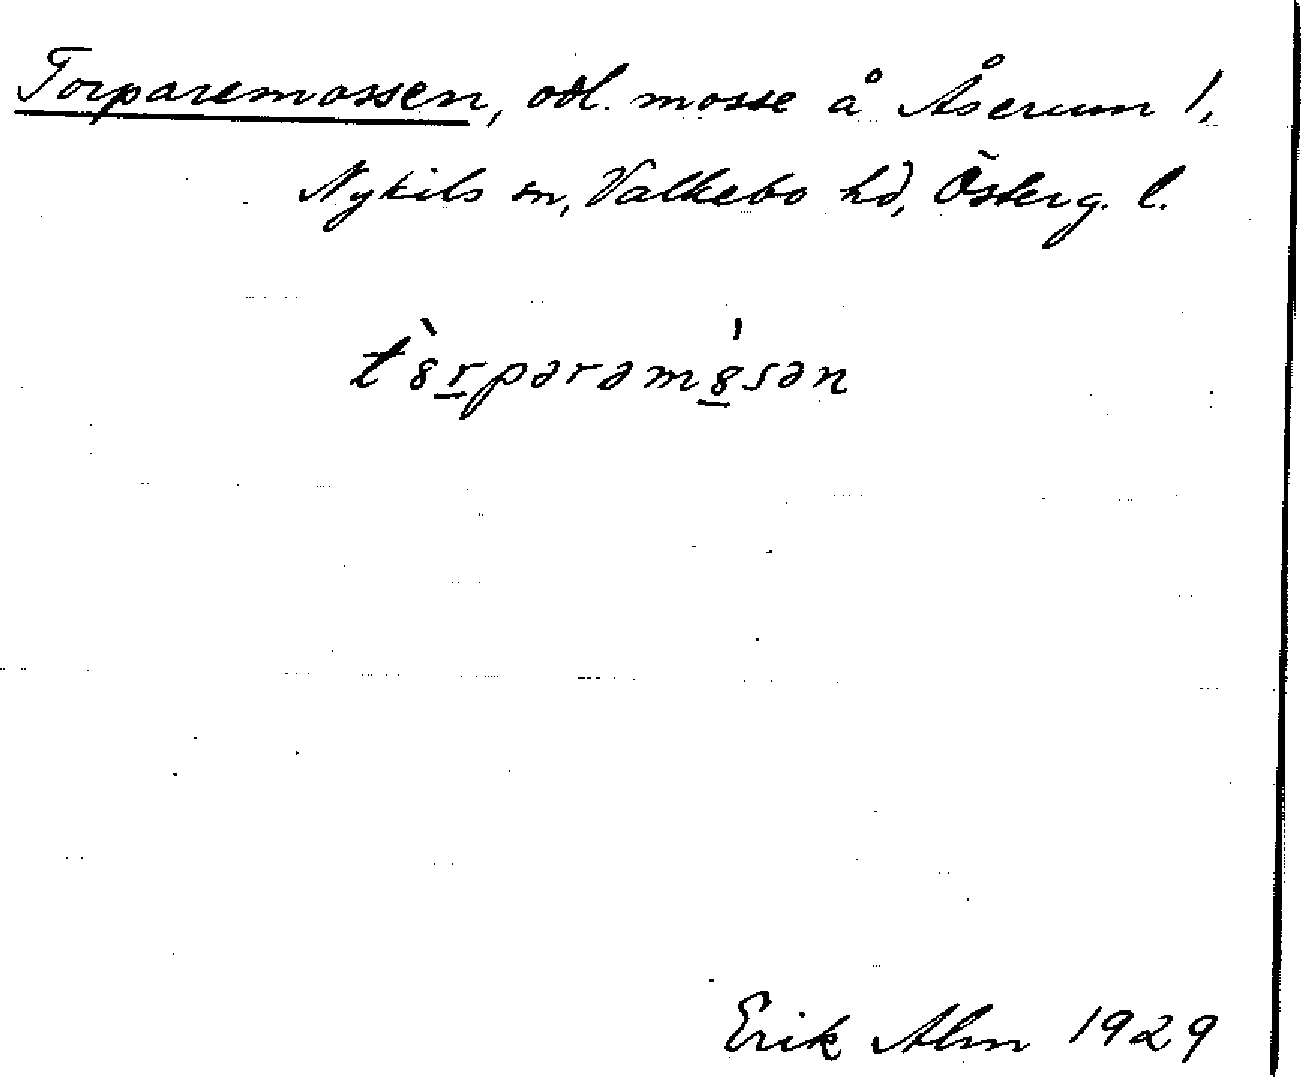 Torparemossen, odl. mosse å Åserum 1,
Nykils sn, Valkebo hd, Österg. l.
tò̀rpərəmósən
Erik Alm 1929